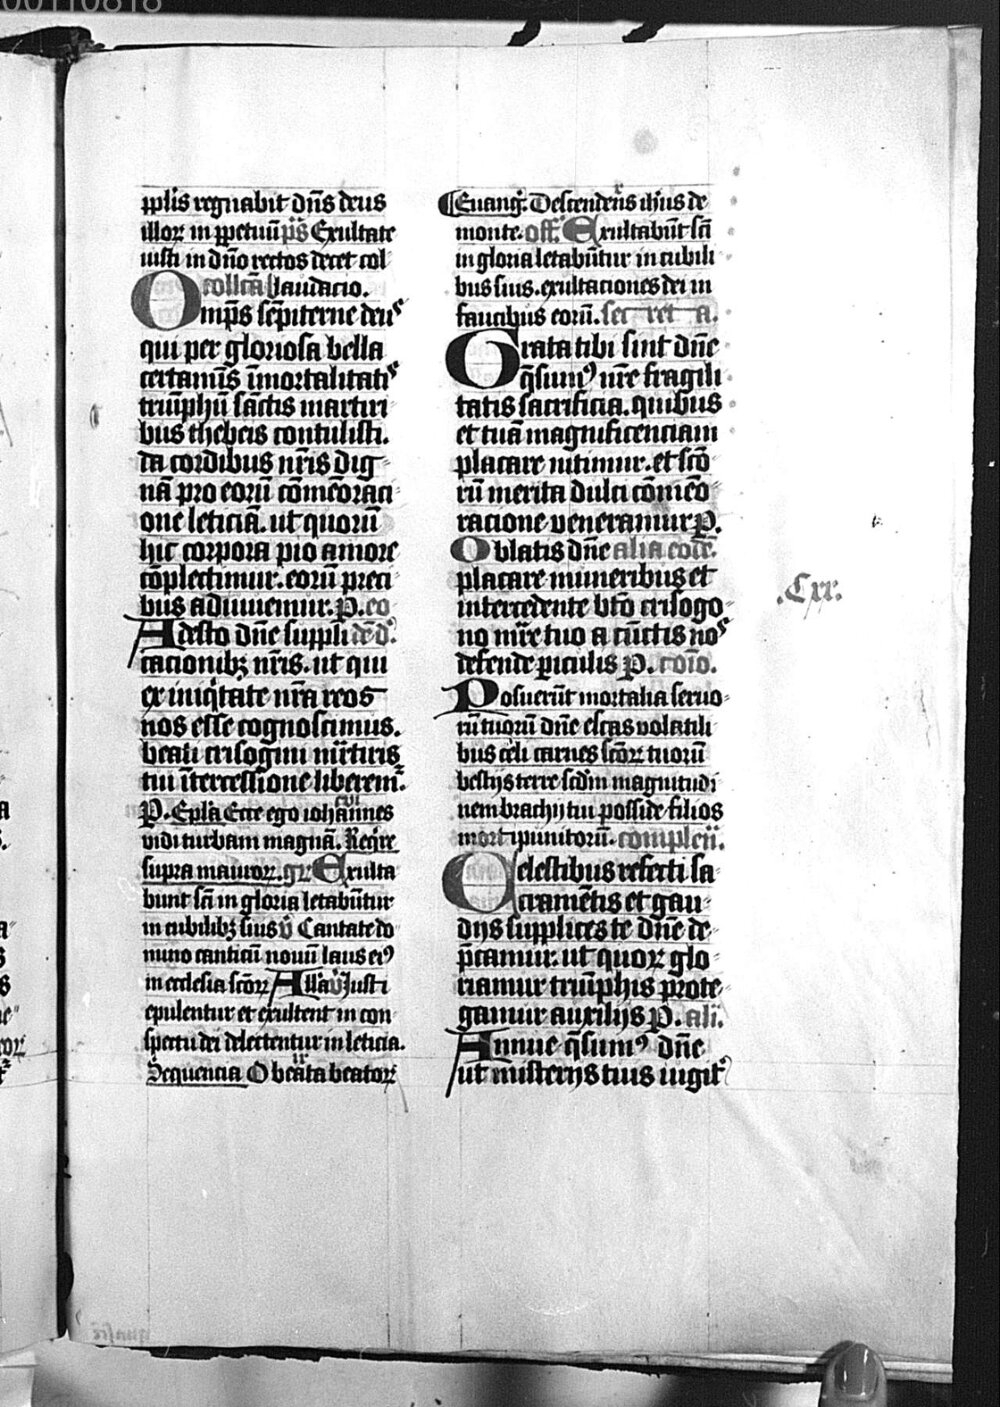 ppl̄is regnabit dn̄s deus
illoꝝ in ꝑpetuū p̄s Exultate
iusti in dn̄o rectos decet col-
collc̄a laudacio.
Omp̄s sēpiterne deus
qui per gloriosa bella
certamīs īmortalitatis
triūphū sāctis martiri
bus thebeis contulisti.
da cordibus nr̄is dig-
nā pro eorū cōmēoraci-
one leticiā. ut quorū
hic corpora pio amore
cōplectimur. eorū preci-
bus adiuuemur. P. eo
Adesto dn̄e suppli dē d.
cacionibꝫ nr̄is. ut qui
ex iniq̄tate nr̄a reos
nos esse cognoscimus.
beati crisogini mr̄tiris
tui ītercessione liberem̄.
P. Epl̄a Ecce ego iohannes
vidi turbam magnā. Req̄re
supra maurorꝝ. gr̄ Exulta
bunt sc̄i in gloria letabūtur
in cubilibꝫ suis v̄ Cantate do
mino canticū nouū laus eiꝰ
in ecclesia sc̄orꝝ Alla v̄ Justi
epulentur et exultent in con-
spectu dei delectentur in leticia.
Sequencia O beata beatorꝝ
Euanḡ. Descendens ih̄us de
monte. off. Exultabūt sc̄i
in gloria letabūtur in cubili
bus suis. exultationes dei in
faucibus eorū. secreta.
Grata tibi sint dn̄e
q̄sumꝰ nr̄e fragili
tatis sacrificia. quibus
et tuā magnificenciam
placare nitimur. et sc̄o
rū merita dulci cōmēo
racione veneramur P.
Oblatis dn̄e alia eodē.
placare muneribus et
intercedente bt̄o crisogo-
no mr̄e tuo a cūctis nos
defende ꝑiculis P. cōio.
Posuerūt mortalia seruo-
rū tuorū dn̄e escas volatili
bus celi carnes sc̄orꝝ tuorū
bestijs terre scdm̄ magnitudi
nem brachij tui posside filios
morti punitorū. complen̄.
Celestibus referti sa-
cramētis et gau-
dijs supplices te dn̄e de-
p̄camur. ut quorꝝ glo-
riamur triūphis prote-
gamur auxilijs P. ali.
Annue q̄sumꝰ dn̄e
ut misterijs tuis iugit̄
.Cxx.